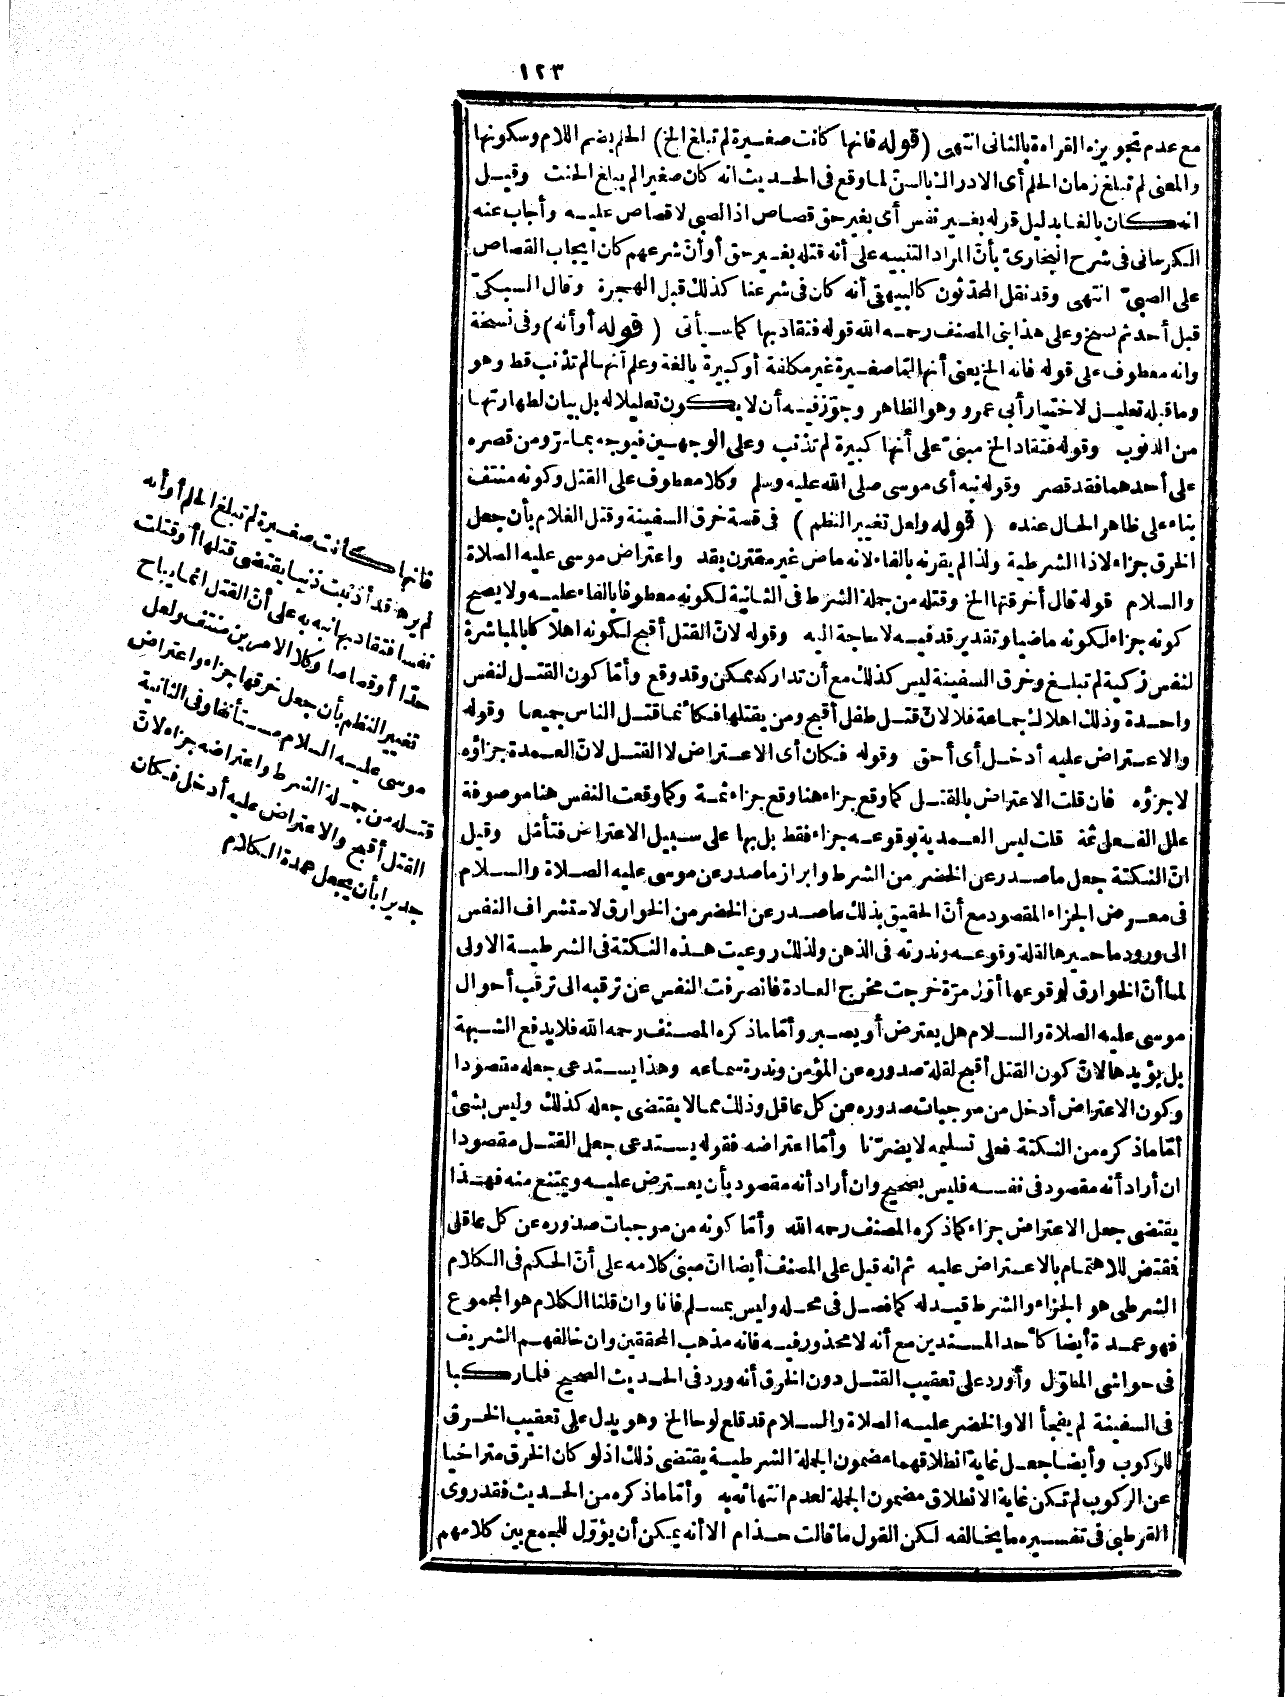 ١٢٣
مع عدم تجويزه القراءة بالثانى انتهى (قوله فانها كانت صغيرة لم تبلغ الخ) الحلم بضم اللام وسكونها
والمعنى لم تبلغ زمان الحلم أى الادراك بالسن لما وقع فى الحديث انه كان صغيرا لم يبلغ الحنث وقيل
انه كان بالغا بدليل قوله بغير نفس أى بغير حق قصاص اذ الصبى لا قصاص عليه وأجاب عنه
الكرمانى فى شرح البخارى بأنّ المراد التنبيه على أنه قتله بغير حق أو أنّ شرعهم كان ايجاب القصاص
على الصبىّ انتهى وقد نقل المحدّثون كالبيهقى أنه كان فى شرعنا كذلك قبل الهجرة وقال السبكىّ
قبل أحد ثم نسخ وعلى هذا بنى المصنف رحمه الله قوله فتقاد بها كما سيأتى (قوله أو أنه) وفى نسخة
وانه معطوف على قوله فانه الخ يعنى أنها امّا صغيرة غير مكلفة أو كبيرة بالغة وعلم أنها لم تذنب قط وهو
وما قبله تعليل لاختيار أبى عمرو وهو الظاهر وجوّز فيه أن لا يكون تعليلا له بل بيان لطهارتها
من الذنوب وقوله فتقاد الخ مبنىّ على أنها كبيرة لم تذنب وعلى الوجهين فيوجه بما مرّ ومن قصره
على أحدهما فقد قصر وقوله نبه أى موسى صلى الله عليه وسلم وكلا معطوف على القتل وكونه منتف
بناء على ظاهر الحال عنده (قوله ولعل تغيير النظم) فى قصة خرق السفينة وقتل الغلام بأن جعل
الخرق جزاء لاذا الشرطية ولذا لم يقرنه بالفاء لانه ماض غير مقترن بقد واعتراض موسى عليه الصلاة
والسلام قوله قال أخرقتها الخ وقتله من جملة الشرط فى الثانية لكونه معطوفا بالفاء عليه ولا يصح
كونه جزاء لكونه ماضيا وتقدير قد فيه لا حاجة اليه وقوله لانّ القتل أقبح لكونه اهلاكا بالمباشرة
لنفس زكية لم تبلغ وخرق السفينة ليس كذلك مع أن تداركه يمكن وقد وقع وأمّا كون القتل لنفس
واحدة وذلك اهلاك جماعة فلا لانّ قتل طفل أقبح ومن يقتلها فكأنما قتل الناس جميعا وقوله
والاعتراض عليه أدخل أى أحق وقوله فكان أى الاعتراض لا القتل لانّ العمدة جزاؤه
لا جزؤه فان قلت الاعتراض بالقتل كما وقع جزاء هنا وقع جزاء ثمة وكما وقعت النفس هنا موصوفة
علل الفعل ثمة قلت ليس العمدية بوقوعه جزاء فقط بل بها على سبيل الاعتراض فتأمّل وقيل
انّ النكتة جعل ما صدر عن الخضر من الشرط وابراز ما صدر عن موسى عليه الصلاة والسلام
فى معرض الجزاء المقصود مع أنّ الحقيق بذلك ما صدر عن الخضر من الخوارق لاستشراف النفس
الى ورود ما خبرها لقلة وقوعه وندرته فى الذهن ولذلك روعيت هذه النكتة فى الشرطية الاولى
لما أنّ الخوارق لوقوعها أوّل مرّة خرجت مخرج العادة فانصرفت النفس عن ترقبه الى ترقب أحوال
موسى عليه الصلاة والسلام هل يعترض أو يصبر وأمّا ما ذكره المصنف رحمه الله فلا يدفع الشبهة
بل يؤيدها لانّ كون القتل أقبح لقلة صدوره عن المؤمن وندرة سماعه وهذا يستدعى جعله مقصودا
وكون الاعتراض أدخل من موجبات صدوره عن كل عاقل وذلك مما لا يقتضى جعله كذلك وليس بشئ
أمّا ما ذكره من النكتة فعلى تسليمه لا يضرّنا وأمّا اعتراضه فقوله يستدعى جعل القتل مقصودا
ان أراد أنه مقصود فى نفسه فليس بصحيح وان أراد أنه مقصود بأن يعترض عليه ويمتنع منه فهذا
يقتضى جعل الاعتراض جزاء كما ذكره المصنف رحمه الله وأمّا كونه من موجبات صدوره عن كل عاقل
فمقتض للاهتمام بالاعتراض عليه ثم انه قيل على المصنف أيضا انّ مبنى كلامه على أنّ الحكم فى الكلام
الشرطى هو الجزاء والشرط قيد له كما فصل فى محله وليس بمسلم فانا وان قلنا الكلام هو المجموع
فهو عمدة أيضا كأحد المسندين مع أنه لا محذور فيه فانه مذهب المحققين وان خالفهم الشريف
فى حواشى المطوّل وأورد على تعقيب القتل دون الخرق أنه ورد فى الحديث الصحيح فلما ركبا
فى السفينة لم يفجأ الا والخضر عليه الصلاة والسلام قد قلع لوحا الخ وهو يدل على تعقيب الخرق
للركوب وأيضا جعل غاية انطلاقهما مضمون الجملة الشرطية يقتضى ذلك اذ لو كان الخرق متراخيا
عن الركوب لم تكن غاية الانطلاق مضمون الجملة لعدم انتهائه به وأمّا ما ذكره من الحديث فقد روى
القرطبى فى تفسيره ما يخالفه لكن القول ما قالت حذام الا أنه يمكن أن يؤوّل للجمع بين كلامهم
فانها كانت صغيرة لم تبلغ الحلم أو أنه
لم يرها قد أذنبت ذنبا يقتضى قتلها أو قتلت
نفسا فتقاد بها نبه به على أنّ القتل انما يباح
حدّا أو قصاصا وكلا الامرين منتف ولعل
تغيير النظم بأن جعل خرقها جزاء واعتراض
موسى عليه السلام مستأنفا وفى الثانية
قتله من جملة الشرط واعتراضه جزاء لانّ
القتل أقبح والاعتراض عليه أدخل فكان
جديرا بأن يجعل عمدة الكلام